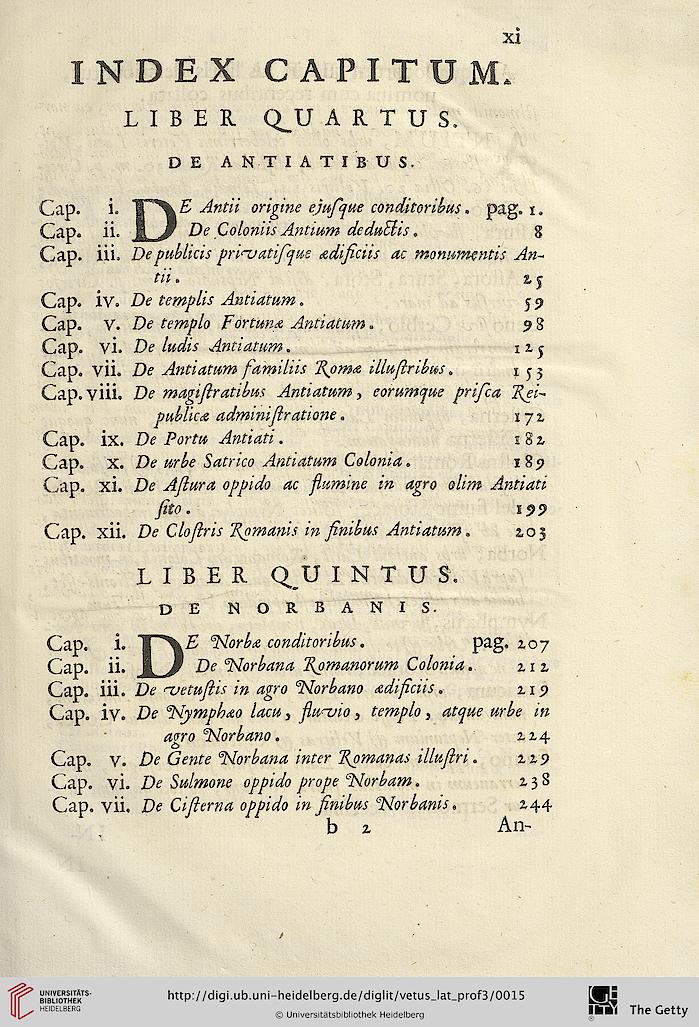 xi
INDEX CAPITUM.
LIBER QUARTUS.
DE ANTIATIBUS.
Cap. i. DE Antii origine ejuſque conditoribus. pag. 1.
Cap. ii. De Coloniis Antium deductis. 8
Cap. iii. De publicis privatiſque ædificiis ac monumentis An-
tii. 25
Cap. iv. De templis Antiatum. 59
Cap. v. De templo Fortunæ Antiatum. 98
Cap. vi. De ludis Antiatum. 125
Cap. vii. De Antiatum familiis Romæ illuſtribus. 153
Cap. viii. De magiſtratibus Antiatum, eorumque priſca Rei-
publicæ adminiſtratione. 172
Cap. ix. De Portu Antiati. 182
Cap. x. De urbe Satrico Antiatum Colonia. 189
Cap. xi. De Aſtura oppido ac flumine in agro olim Antiati
ſito. 199
Cap. xii. De Cloſtris Romanis in finibus Antiatum. 203
LIBER QUINTUS.
DE NORBANIS.
Cap. i. DE Norbæ conditoribus. pag. 207
Cap. ii. De Norbana Romanorum Colonia. 212
Cap. iii. De vetuſtis in agro Norbano ædificiis. 219
Cap. iv. De Nymphæo lacu, fluvio, templo, atque urbe in
agro Norbano. 224
Cap. v. De Gente Norbana inter Romanas illuſtri. 229
Cap. vi. De Sulmone oppido prope Norbam. 238
Cap. vii. De Ciſterna oppido in finibus Norbanis. 244
b 2 An-
UNIVERSITÄTS-
BIBLIOTHEK
HEIDELBERG
http://digi.ub.uni-heidelberg.de/diglit/vetus_lat_prof3/0015
© Universitätsbibliothek Heidelberg
GETTY
The Getty